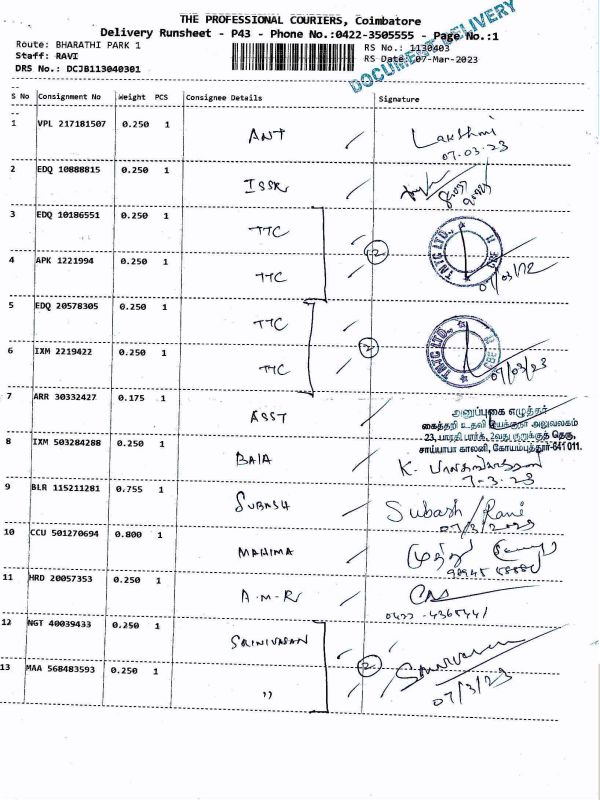 THE PROFESSIONAL COURIERS, Coimbatore
Delivery Runsheet - P43 - Phone No.:0422-3505555 - Page No.:1
Route: BHARATHI PARK 1
RS No.: 1130403
Staff: RAVI
RS Date: 07-Mar-2023
DRS No.: DCJB113040301
DOCUMENT DELIVERY
S No Consignment No Weight PCS Consignee Details Signature
1 VPL 217181507 0.250 1 ANT Lakshmi
07.03.23
2 EDQ 10888815 0.250 1 ISSR
3 EDQ 10186551 0.250 1 TTC
TNTC LTD.,
CBE
4 APK 1221994 0.250 1 TTC
2
5 EDQ 20578305 0.250 1 TTC
TNTC LTD.,
CBE
6 IXM 2219422 0.250 1 TTC
2
07/03/23
7 ARR 30332427 0.175 1 ASST
அனுப்புகை எழுத்தர்
கைத்தறி உதவி இயக்குநர் அலுவலகம்
23, பாரதி பார்க், 2வது குறுக்குத் தெரு,
சாய்பாபா காலனி, கோயம்புத்தூர்-641 011.
8 IXM 503284288 0.250 1 BAIA K.
7-3-23
9 BLR 115211281 0.755 1 SUBASH Subash / Rani
07/3/2023
10 CCU 501270694 0.800 1 MAHIMA முத்து
11 HRD 20057353 0.250 1 A.M.R
0422-4365441
12 NGT 40039433 0.250 1 SRINIVASAN
13 MAA 568483593 0.250 1 "
2
07/3/23